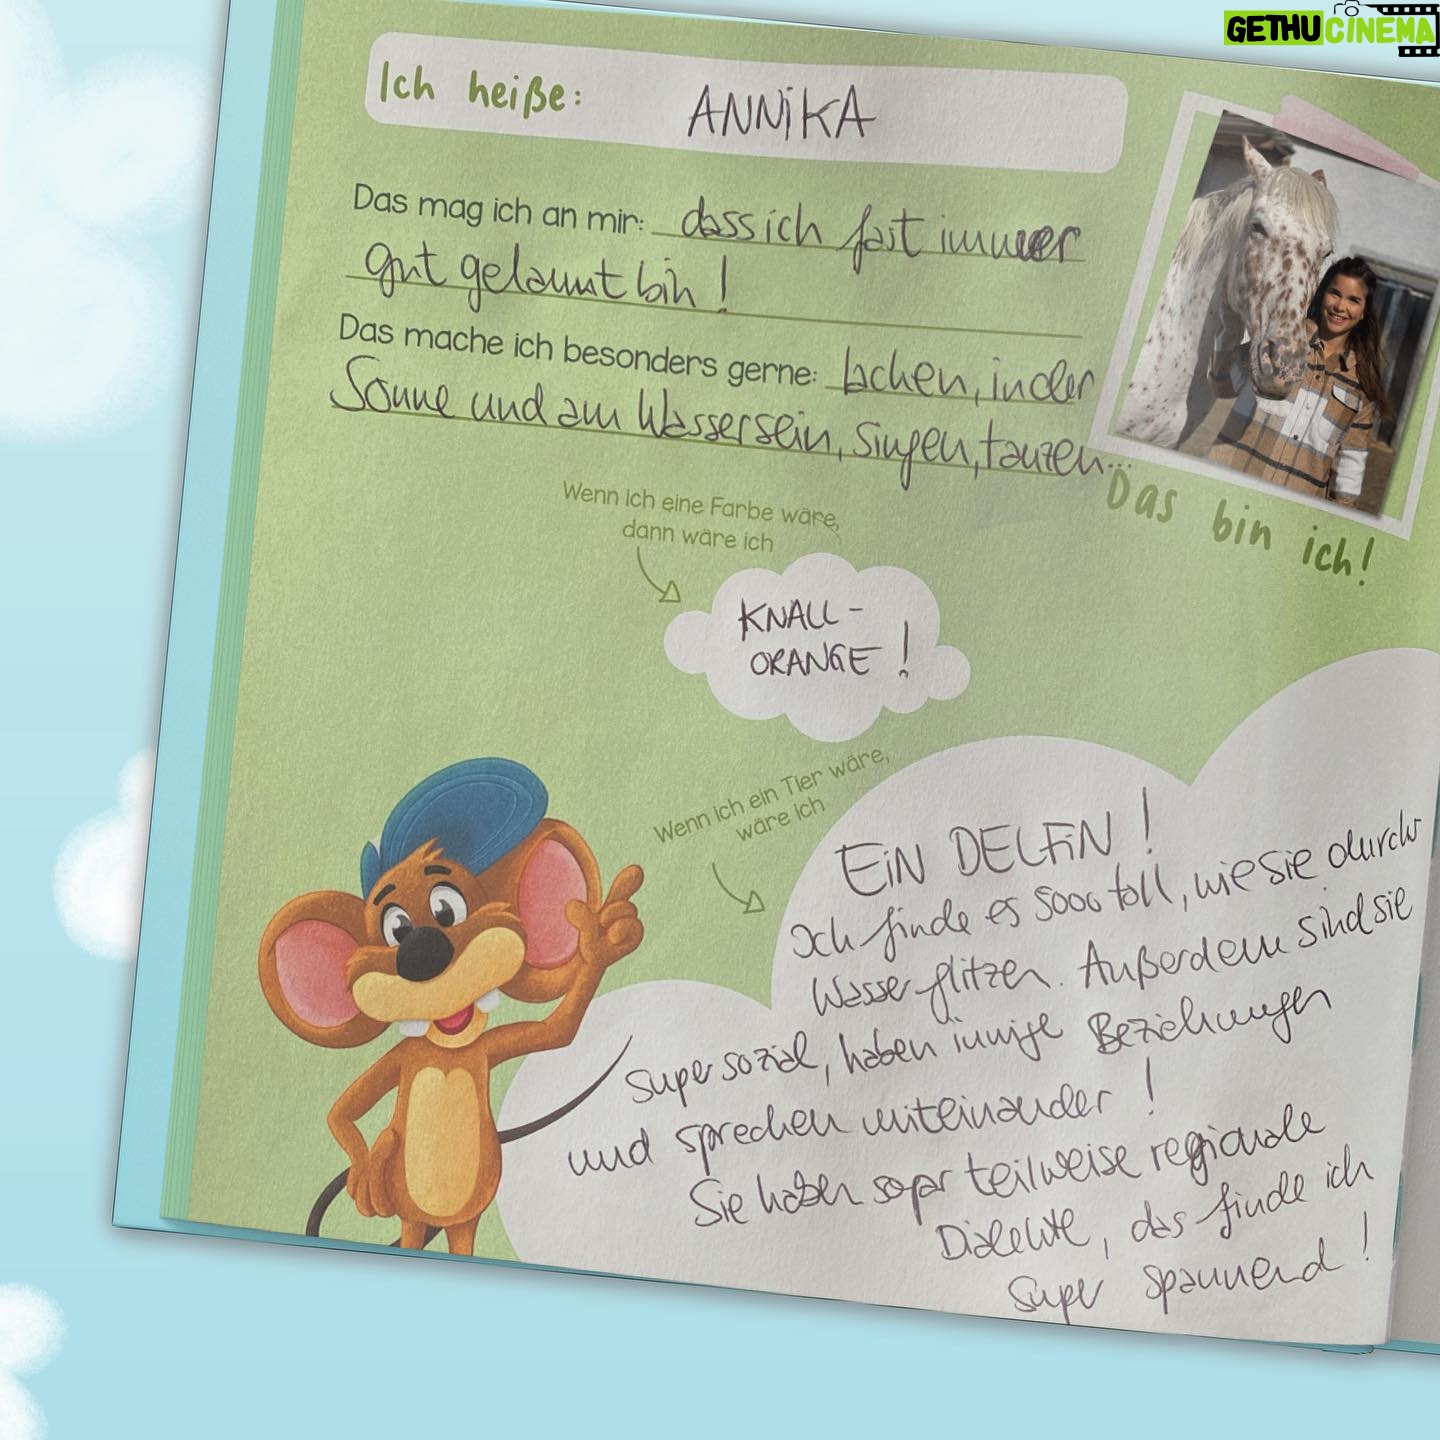 GETHUCINEMA
Ich heiße: ANNiKA
Das mag ich an mir: dass ich fast immer
gut gelaunt bin!
Das mache ich besonders gerne: lachen, in der
Sonne und am Wasser sein, singen, tanzen...
Das bin ich!
Wenn ich eine Farbe wäre,
dann wäre ich
KNALL-
ORANGE!
Wenn ich ein Tier wäre,
wäre ich
EiN DELFiN!
Ich finde es sooo toll, wie sie durchs
Wasser flitzen. Außerdem sind sie
super sozial, haben innige Beziehungen
und sprechen miteinander!
Sie haben sogar teilweise regionale
Dialekte, das finde ich
super spannend!